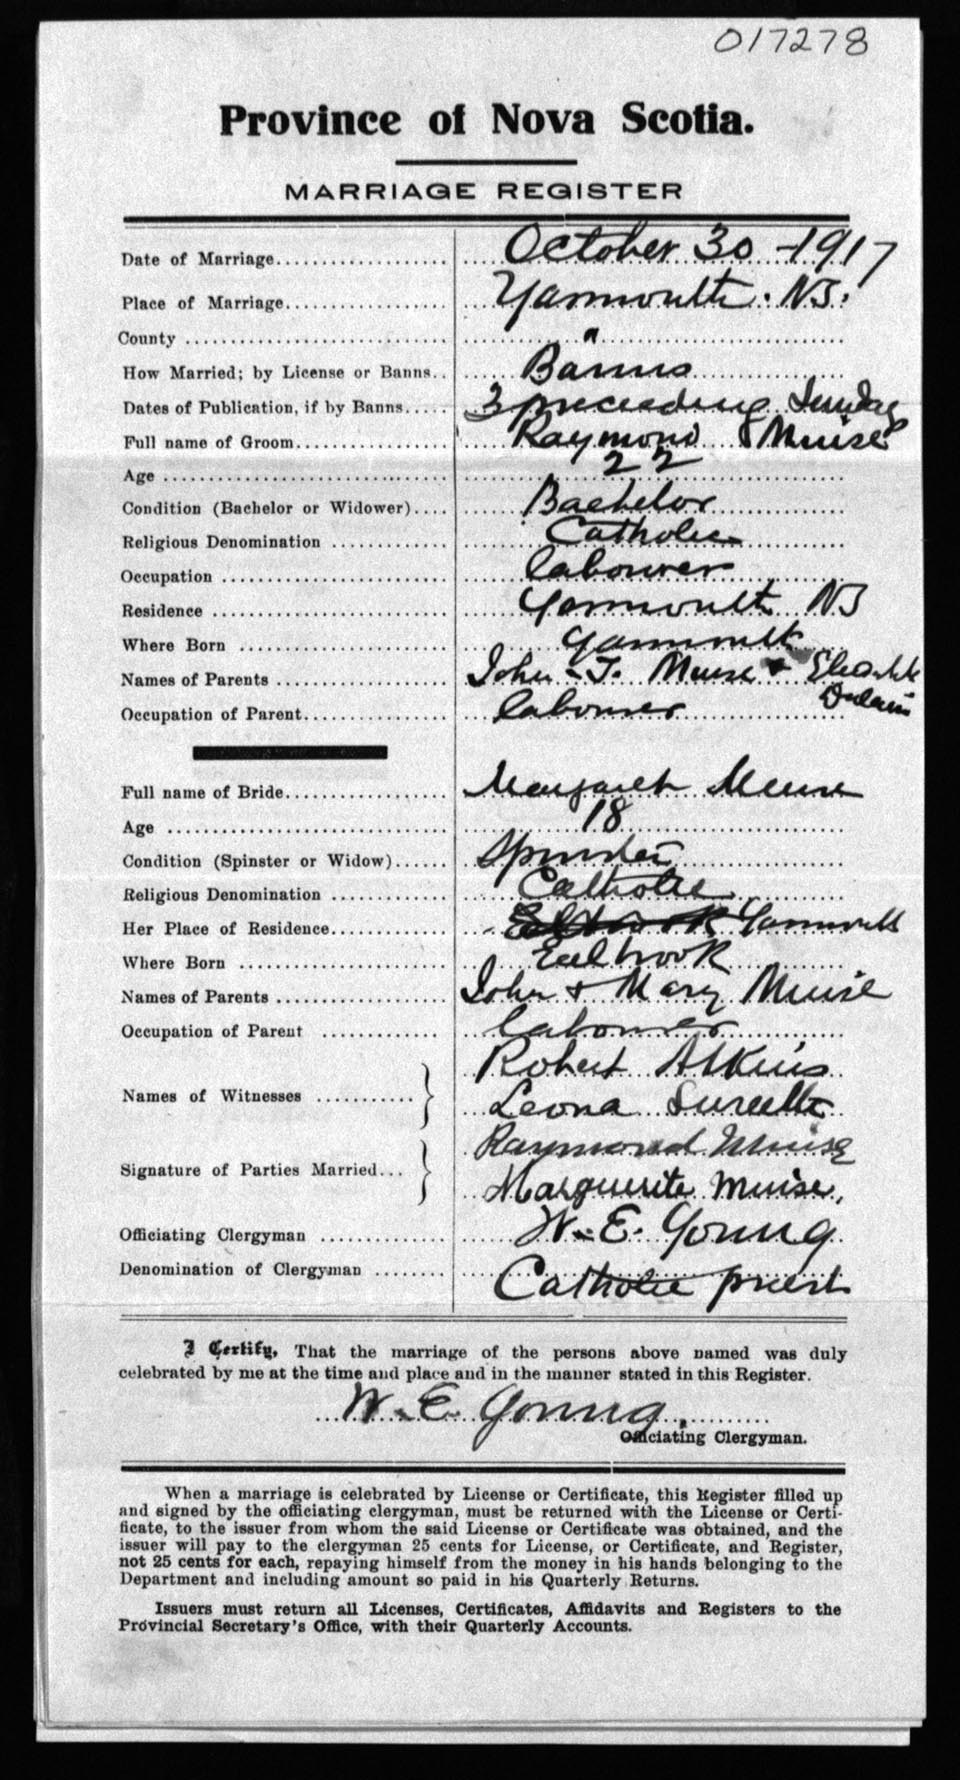 017278
Province of Nova Scotia.
MARRIAGE REGISTER
Date of Marriage........ October 30 - 1917
Place of Marriage........ Yarmouth. N.S.
County ........ "
How Married; by License or Banns.. Banns
Dates of Publication, if by Banns..... 3 preceeding Sunday
Full name of Groom........ Raymond Muise
Age ........ 22
Condition (Bachelor or Widower).... Bachelor
Religious Denomination ........ Catholic
Occupation ........ labourer
Residence ........ Yarmouth NS
Where Born ........ Yarmouth
Names of Parents ........ John T. Muise + Elizabeth
Occupation of Parent........ labourer
Full name of Bride........ Margaret Muise
Age ........ 18
Condition (Spinster or Widow)...... Spinster
Religious Denomination ........ Catholic
Her Place of Residence........ Eelbrook Yarmouth
Where Born ........ Eelbrook
Names of Parents ........ John + Mary Muise
Occupation of Parent ........ labourer
Names of Witnesses ........ Robert Atkins
Leona Surette
Signature of Parties Married... Raymond Muise
Marguerite Muise,
Officiating Clergyman ........ W. E. Young
Denomination of Clergyman ........ Catholic priest
I Certify, That the marriage of the persons above named was duly
celebrated by me at the time and place and in the manner stated in this Register.
W. E. Young.
Officiating Clergyman.
When a marriage is celebrated by License or Certificate, this Register filled up
and signed by the officiating clergyman, must be returned with the License or Certi-
ficate, to the issuer from whom the said License or Certificate was obtained, and the
issuer will pay to the clergyman 25 cents for License, or Certificate, and Register,
not 25 cents for each, repaying himself from the money in his hands belonging to the
Department and including amount so paid in his Quarterly Returns.
Issuers must return all Licenses, Certificates, Affidavits and Registers to the
Provincial Secretary's Office, with their Quarterly Accounts.